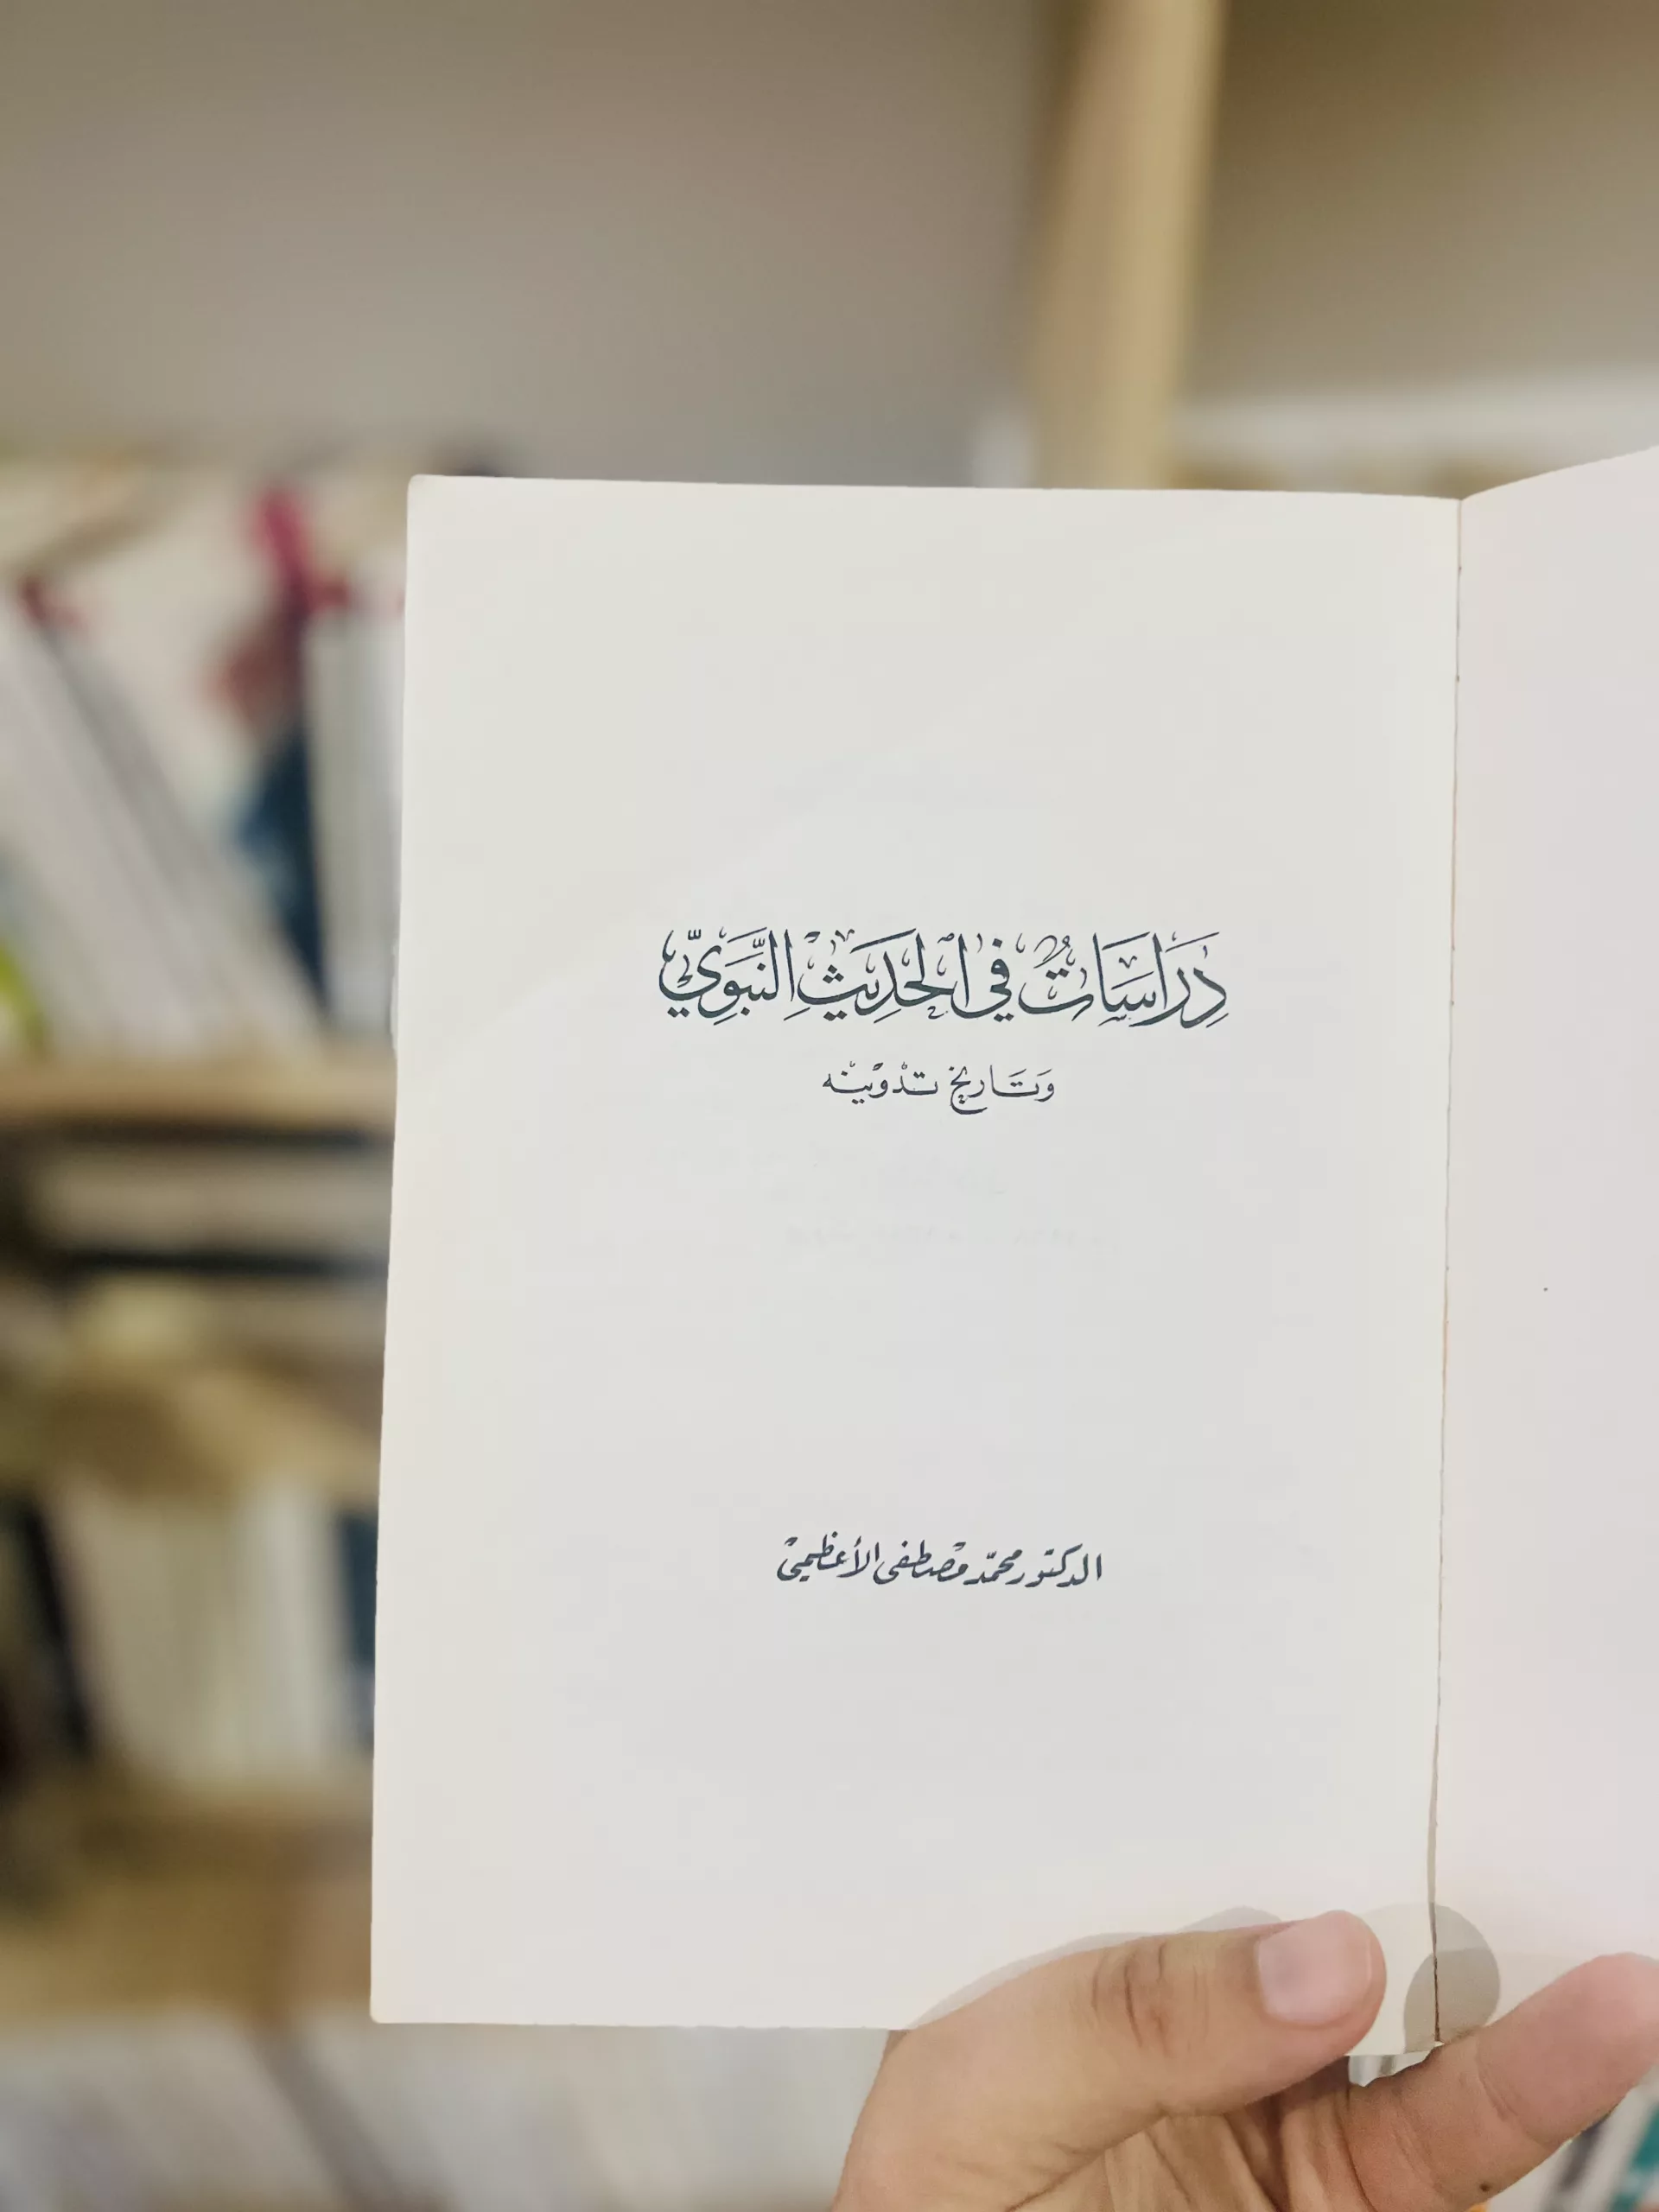 دِرَاسَاتٌ فِي الْحَدِيْثِ النَّبَوِيّ
وَتَاريخ تدْوينه
الدكتور محمّد مصطفى الأعظمي